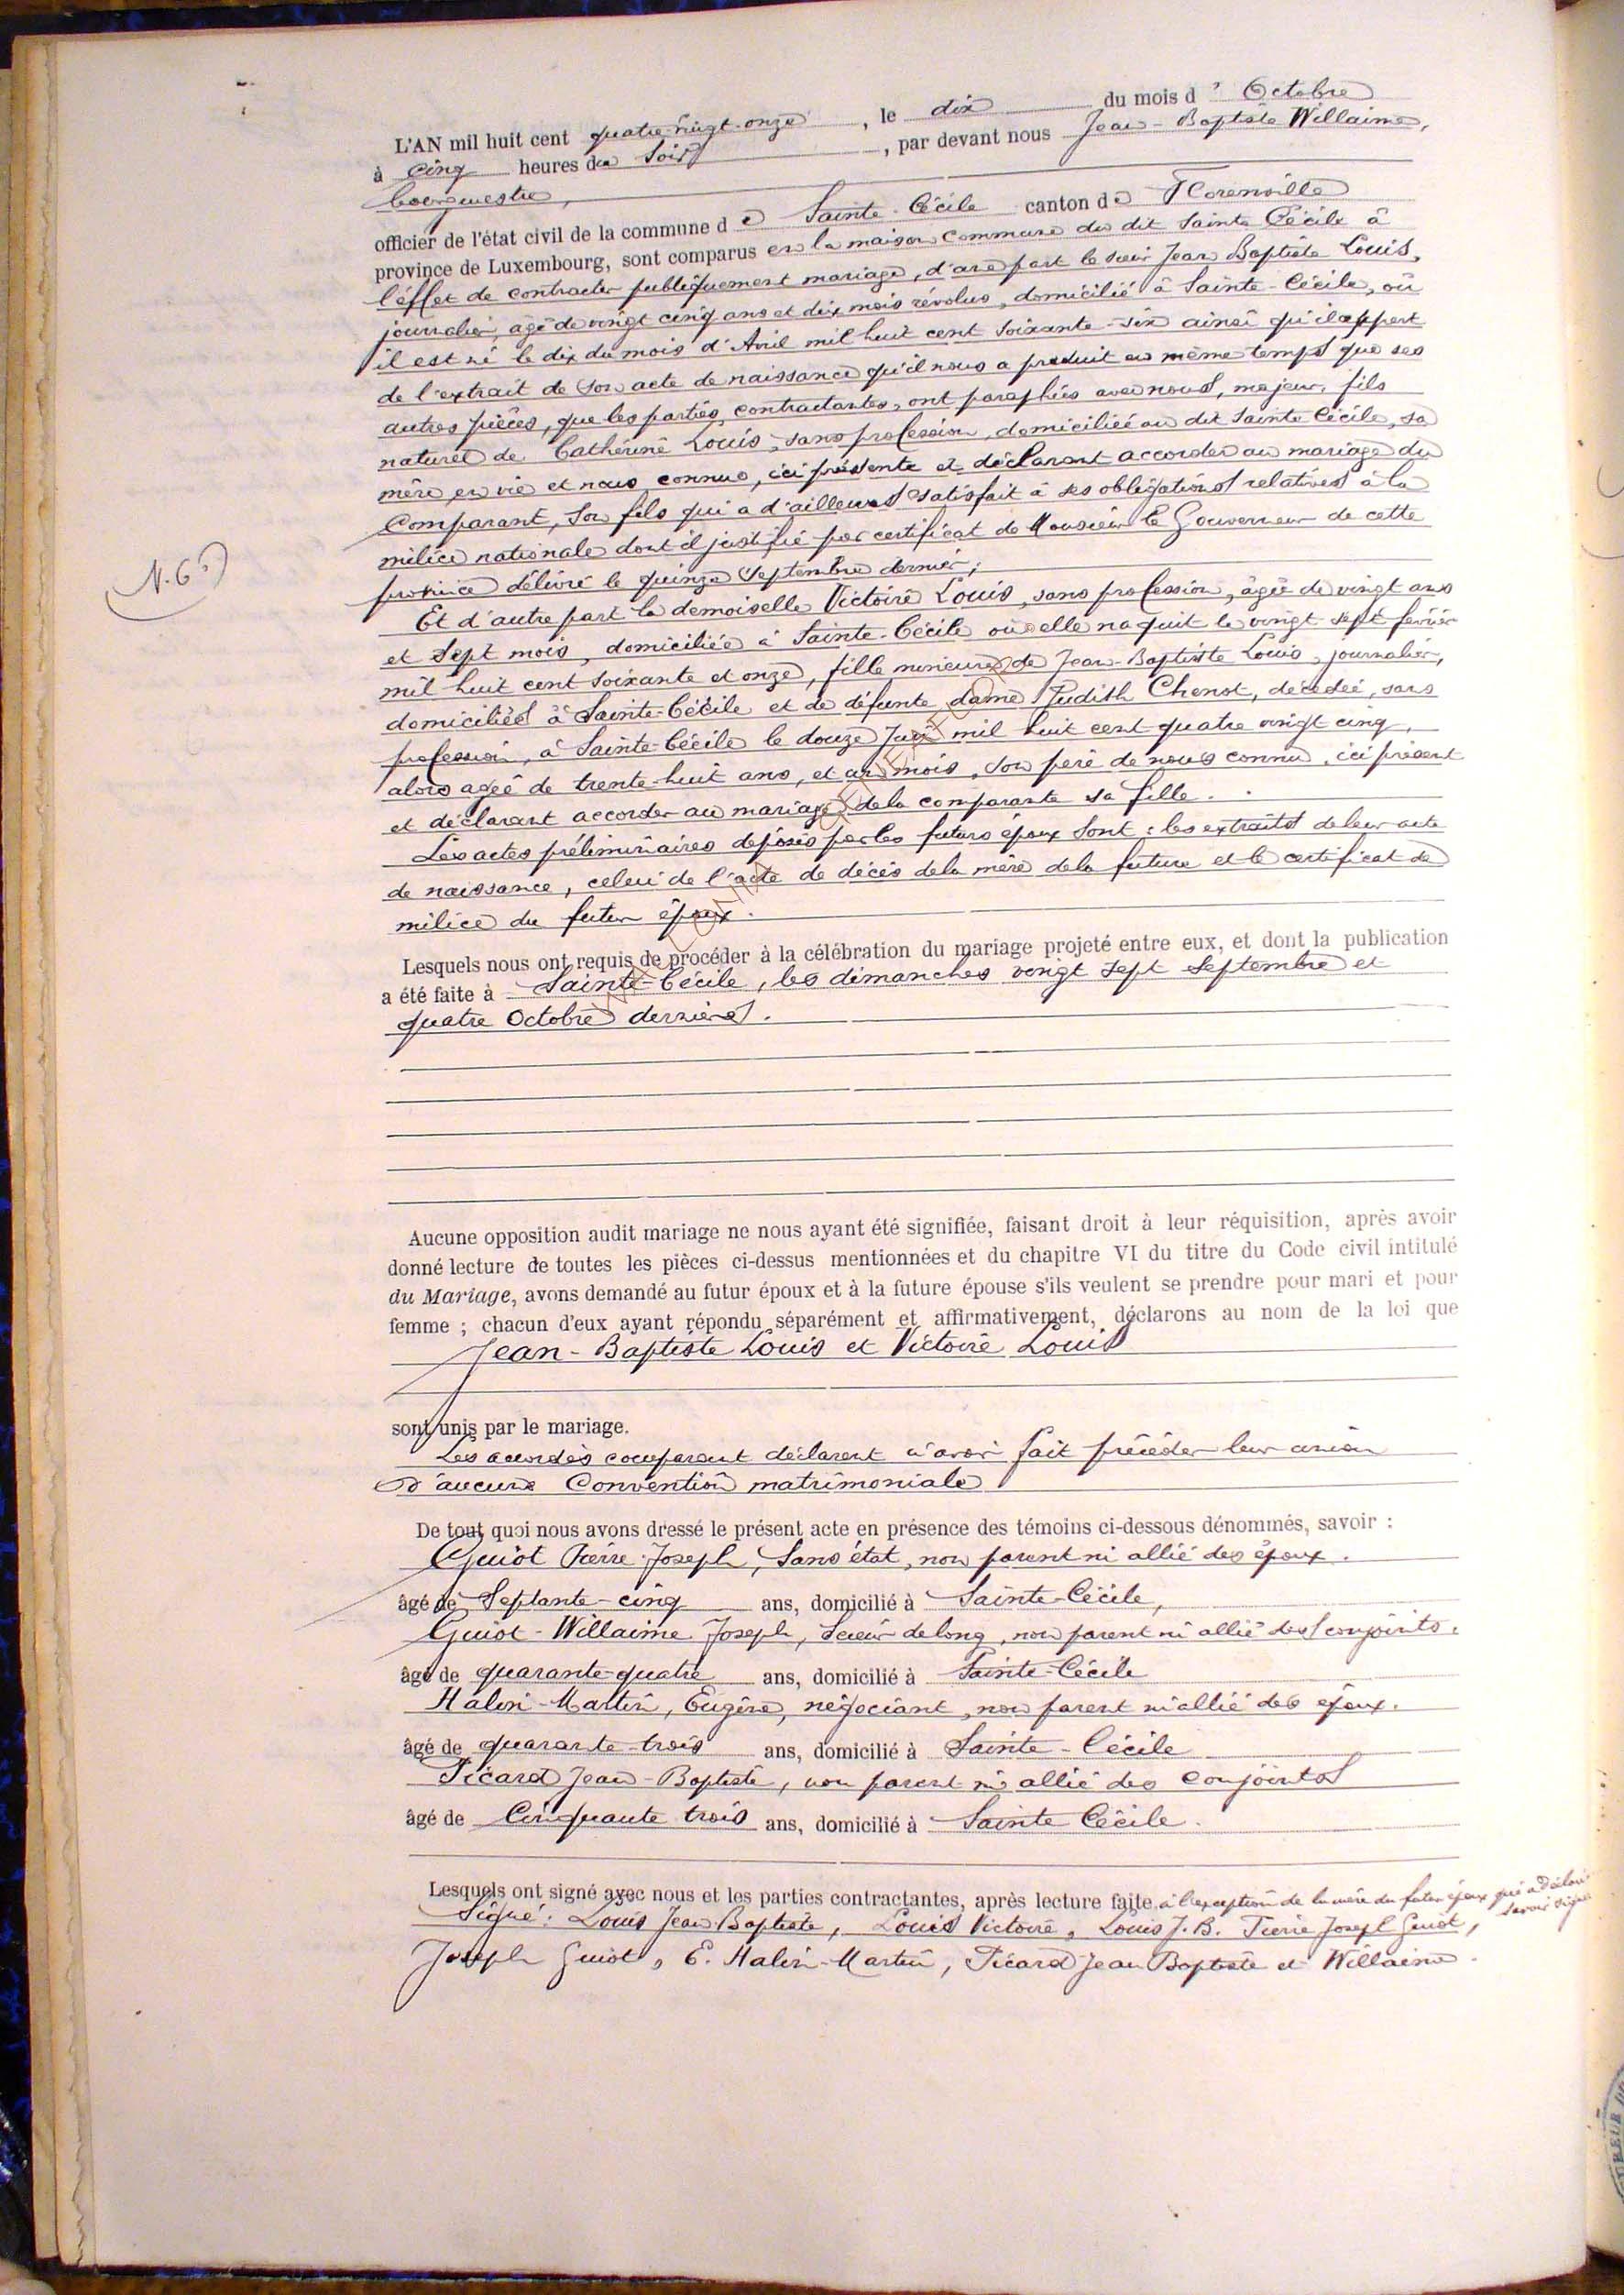 L'AN mil huit cent quatre-vingt-onze, le dix du mois d'Octobre
à cinq heures du soir, par devant nous Jean-Baptiste Willaime,
bourgmestre,
officier de l'état civil de la commune de Sainte-Cécile canton de Florenville
province de Luxembourg, sont comparus en la maison commune du dit Sainte Cécile à
l'effet de contracter publiquement mariage, d'une part le sieur Jean Baptiste Louis,
journalier, âgé de vingt cinq ans et dix mois révolus, domicilié à Sainte-Cécile, où
il est né le dix du mois d'Avril mil huit cent soixante-six ainsi qu'il appert
de l'extrait de son acte de naissance qu'il nous a produit en même temps que ses
autres pièces, que les parties contractantes, ont paraphées avec nous, majeur, fils
naturel de Cathérine Louis, sans profession, domiciliée au dit Sainte Cécile, sa
mère en vie et nous connue, ici présente et déclarant accorder au mariage du
Comparant, son fils qui a d'ailleurs satisfait à ses obligations relatives à la
milice nationale dont il justifié par certificat de Monsieur le Gouverneur de cette
N. 6
province délivré le quinze Septembre dernier;
Et d'autre part la demoiselle Victoire Louis, sans profession, âgée de vingt ans
et sept mois, domiciliée à Sainte-Cécile où elle naquit le vingt-sept février
mil huit cent soixante et onze, fille mineure de Jean-Baptiste Louis, journalier,
domiciliés à Sainte-Cécile et de défunte dame Judith Chenot, décédée, sans
profession, à Sainte-Cécile le douze mil huit cent quatre vingt cinq,
alors agée de trente-huit ans, et un mois, son père de nous connu, ici présent
et déclarant accorder au mariage de la comparante sa fille.
Les actes préliminaires déposés par les futurs époux sont : les extraits de leur acte
de naissance, celui de l'acte de décès de la mère de la future et le certificat de
milice du futur époux.
Lesquels nous ont requis de procéder à la célébration du mariage projeté entre eux, et dont la publication
a été faite à Sainte-Cécile, les dimanches vingt sept Septembre et
quatre Octobre derniers.
Aucune opposition audit mariage ne nous ayant été signifiée, faisant droit à leur réquisition, après avoir
donné lecture de toutes les pièces ci-dessus mentionnées et du chapitre VI du titre du Code civil intitulé
du Mariage, avons demandé au futur époux et à la future épouse s'ils veulent se prendre pour mari et pour
femme ; chacun d'eux ayant répondu séparément et affirmativement, déclarons au nom de la loi que
Jean-Baptiste Louis et Victoire Louis
sont unis par le mariage.
Les accordés comparant déclarent n'avoir fait précéder leur union
d'aucune Convention matrimoniale
De tout quoi nous avons dressé le présent acte en présence des témoins ci-dessous dénommés, savoir :
Guiot Pierre Joseph, Sans état, non parent ni allié des époux.
âgé de Septante-cinq ans, domicilié à Sainte-Cécile,
Guiot-Willaime Joseph, Scieur de long, non parent ni allié des conjoints.
âgé de quarante-quatre ans, domicilié à Sainte-Cécile
Halin-Martin, Eugène, négociant, non parent ni allié des époux.
âgé de quarante-trois ans, domicilié à Sainte-Cécile
Ticard Jean-Baptiste, non parent ni allié des conjoints
âgé de Cinquante trois ans, domicilié à Sainte Cécile.
Lesquels ont signé avec nous et les parties contractantes, après lecture faite à l'exception de la mère du futur époux qui a déclaré
savoir signer
Signé : Louis Jean-Baptiste, Louis Victoire, Louis J.B. Pierre Joseph Guiot,
Joseph Guiot, E. Halin-Martin, Ticard Jean Baptiste et Willaime.